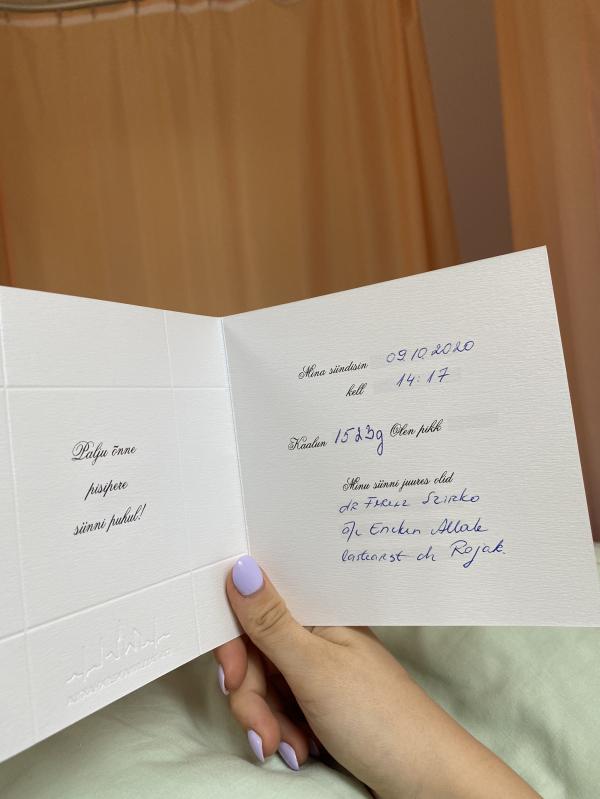 Palju õnne
pisipere
sünni puhul!
Mina sündisin 09.10.2020
kell 14:17
Kaalun 1523g Olen pikk
Minu sünni juures olid
dr Szirko
ä/e Allak
lastearst dr Rojak.